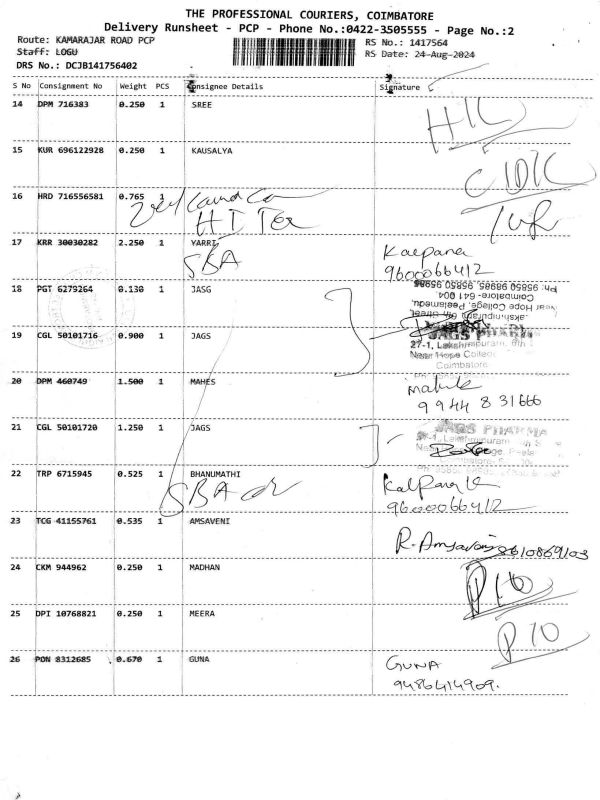 THE PROFESSIONAL COURIERS, COIMBATORE
Delivery Runsheet - PCP - Phone No.:0422-3505555 - Page No.:2
Route: KAMARAJAR ROAD PCP
RS No.: 1417564
Staff: LOGU
RS Date: 24-Aug-2024
DRS No.: DCJB141756402
S No Consignment No Weight PCS Consignee Details Signature
14 DPM 716383 0.250 1 SREE
15 KUR 696122928 0.250 1 KAUSALYA
16 HRD 716556581 0.765 1
17 KRR 30030282 2.250 1 YARRI Kalpana
SBA 9600066412
18 PGT 6279264 0.130 1 JASG
Ph: 95850 98985, 95850 95985
Coimbatore-641 004.
Near Hope College, Peelamedu,
Lakshmipuram, 6th Street,
19 CGL 50101716 0.900 1 JAGS JAGS PHARMA
27-1, Lakshmipuram, 6th
Near Hope College
Coimbatore
20 DPM 460749 1.500 1 MAHES
9944 831666
21 CGL 50101720 1.250 1 JAGS JAGS PHARMA
Lakshmipuram
22 TRP 6715945 0.525 1 BHANUMATHI Kalpana K
SBA 9600066412
23 TCG 41155761 0.535 1 AMSAVENI
R. Amsaveni 8610869103
24 CKM 944962 0.250 1 MADHAN
P10
25 DPI 10768821 0.250 1 MEERA
P10
26 PON 8312685 0.670 1 GUNA GUNA
9486414909.